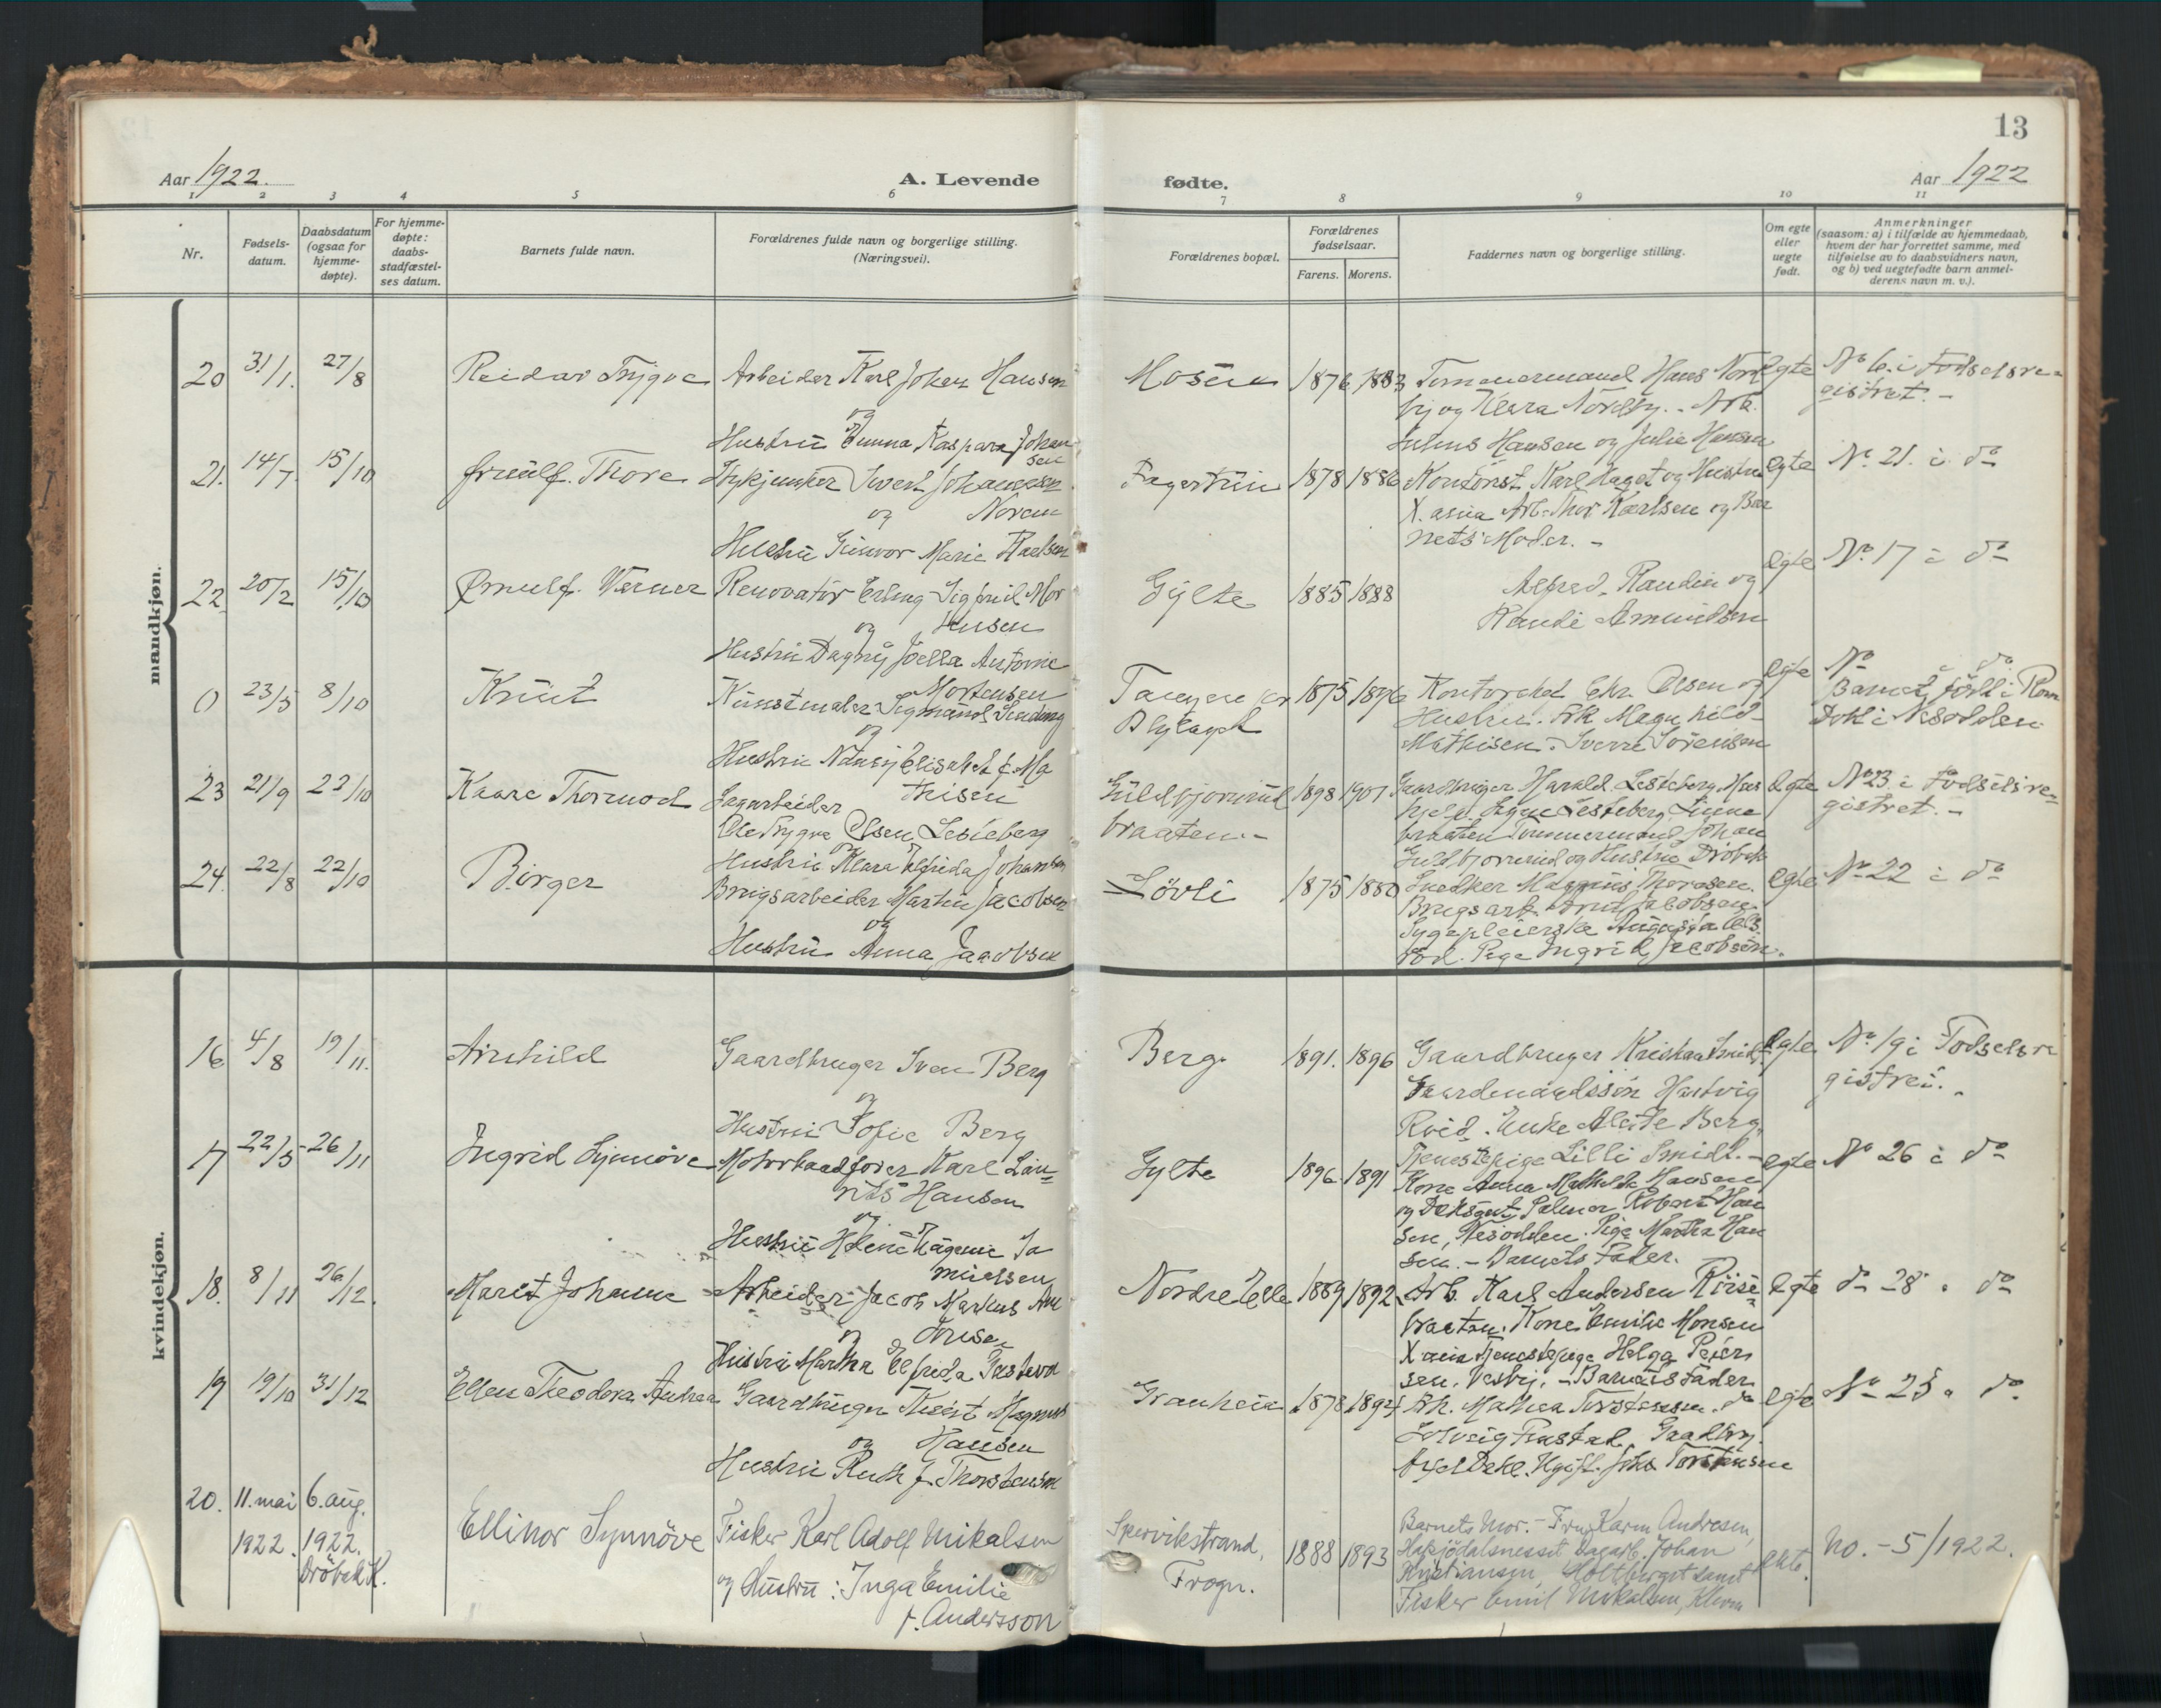 13
Aar 1922. A. Levende fødte. Aar 1922
1 2 3 4 5 6 7 8 9 10 11
Nr.
Fødsels-
datum.
Daabsdatum
(ogsaa for
hjemme-
døpte).
For hjemme-
døpte:
daabs-
stadfæstel-
ses datum.
Barnets fulde navn.
Forældrenes fulde navn og borgerlige stilling.
(Næringsvei).
Forældrenes bopæl.
Forældrenes
fødselsaar.
Farens. Morens.
Faddernes navn og borgerlige stilling.
Om egte
eller
uegte
født.
Anmerkninger
(saasom: a) i tilfælde av hjemmedaab,
hvem der har forrettet samme, med
tilføielse av to daabsvidners navn,
og b) ved uegtefødte barn anmel-
derens navn m. v.).
mandkjøn.
20 31/1. 27/8 Reidar Trygve
Arbeider Karl Johan Hansen
og
Hustru Emma Kaspara Johan
sen
Mosen 1876 1883
Tømmermand Hans Nord
by og Klara Nordby. - Arb.
Julius Hansen og Julie Hansen
egte
No 6. i Fødselsre-
gistret. -
21. 14/7. 15/10 Thore
Johannesen
og Noren
Hustru Gunvor Marie Karlsen
Fagertun 1878 1886
Kontorist Karl Haget og Hustru
X.ania Arb. Thor Karlsen og Bar
nets Moder. -
egte
No. 21. i do
22 20/2 15/10 Ørnulf Werner
Renovatør Erling Sigfrid Mor
og tensen
Hustru Dagny Joella Antonie
Mortensen
Gylte 1885 1888
Alfred Randin og
Randi Amundsen
egte
No. 17 i do
0 23/5 8/10 Knut
Kunstmaler Sigmund Sinding
og
Hustru Nancy Elisabet f. Ma
thisen
Tangen
1875 1896
Chr. Olsen og
Hustru. Frk. Magnhild
Mathisen. Sverre Sørensen
egte
No do
Barnet født i
Døbt i Nesodden
23 21/9 22/10 Kaare Thormod
Sagarbeider
Ole Trygve Olsen Lesteberg
og
Hustru Klara Elfrida Johansen
Guldbjørnrud
braaten. -
1898 1901
Gaardbruger Harald Lesteberg, Hus
Signe Lesteberg,
braaten Tømmermand Johan
Guldbjørnrud og Hustru Drøbak
egte
No 23 i Fødselsre-
gistret. -
24. 22/8 22/10 Birger
Brugsarbeider Martin Jacobsen
og
Hustru Anna Jacobsen
Løvli 1875 1880
Snedker Magnus Thoresen.
Brugsarb. Jacobsen.
Sygepleierske Augusta Ols.
Pige Ingrid Jacobsen.
egte
No 22 i do
kvindekjøn.
16 4/8 19/11. Arnhild
Gaardbruger Sven Berg
og
Hustru Sofie Berg
Berg. 1891. 1896
Gaardbruger Kristian Smidt
Gaardmandssøn Hartvig
Roid. Enke Alette Berg,
Tjenestepige Lilli Smidt. -
egte
No 19 i Fødselsre
gistret. -
17 22/5 26/11 Ingrid Synnøve
Motorbaadfører Karl Lau-
rits Hansen
og
Hustru Helene Eugenie Sa
muelsen
Gylte 1896 1891
Kone Anna Mathilde Hansen
og Dæksgut Palmer Robert Han
sen, Nesodden. Pige Martha Han
sen. - Barnets Fader.
egte
No 26 i do
18. 8/11 26/12. Marit Johanne
Arbeider Jacob Markus An
og tonsen
Hustru Martha Elfrida Gustavd
Nordre Elle 1889 1892
Arb. Karl Andersen Riise-
braaten. Kone Emilie Monsen
X ania Tjenestepige Helga Peder
sen, Vestby. - Barnets Fader
egte
do 28 " do
19 19/10 31/12 Ellen Theodora Andrea
Gaardbruger Magnus
og Hansen
Hustru Ruth f. Thorstensen
Granheim 1878 1894
Mathea Torstensen. do
Solveig
Dehl. Ugift. Johs. Torstensen
egte
No 25 " do
20. 11. mai 6. aug.
1922. 1922.
Drøbak K.
Ellinor Synnöve
Fisker Karl Adolf Mikalsen
og Hustru: Inga Emilie
f. Andersson
Spervikstrand,
Frogn.
1888 1893
Barnets Mor. - Fru Karen Andresen,
Dagarb. Johan
Kristiansen, Holtberget samt
Fisker Emil Mikalsen,
ekte.
No. - 5/1922.